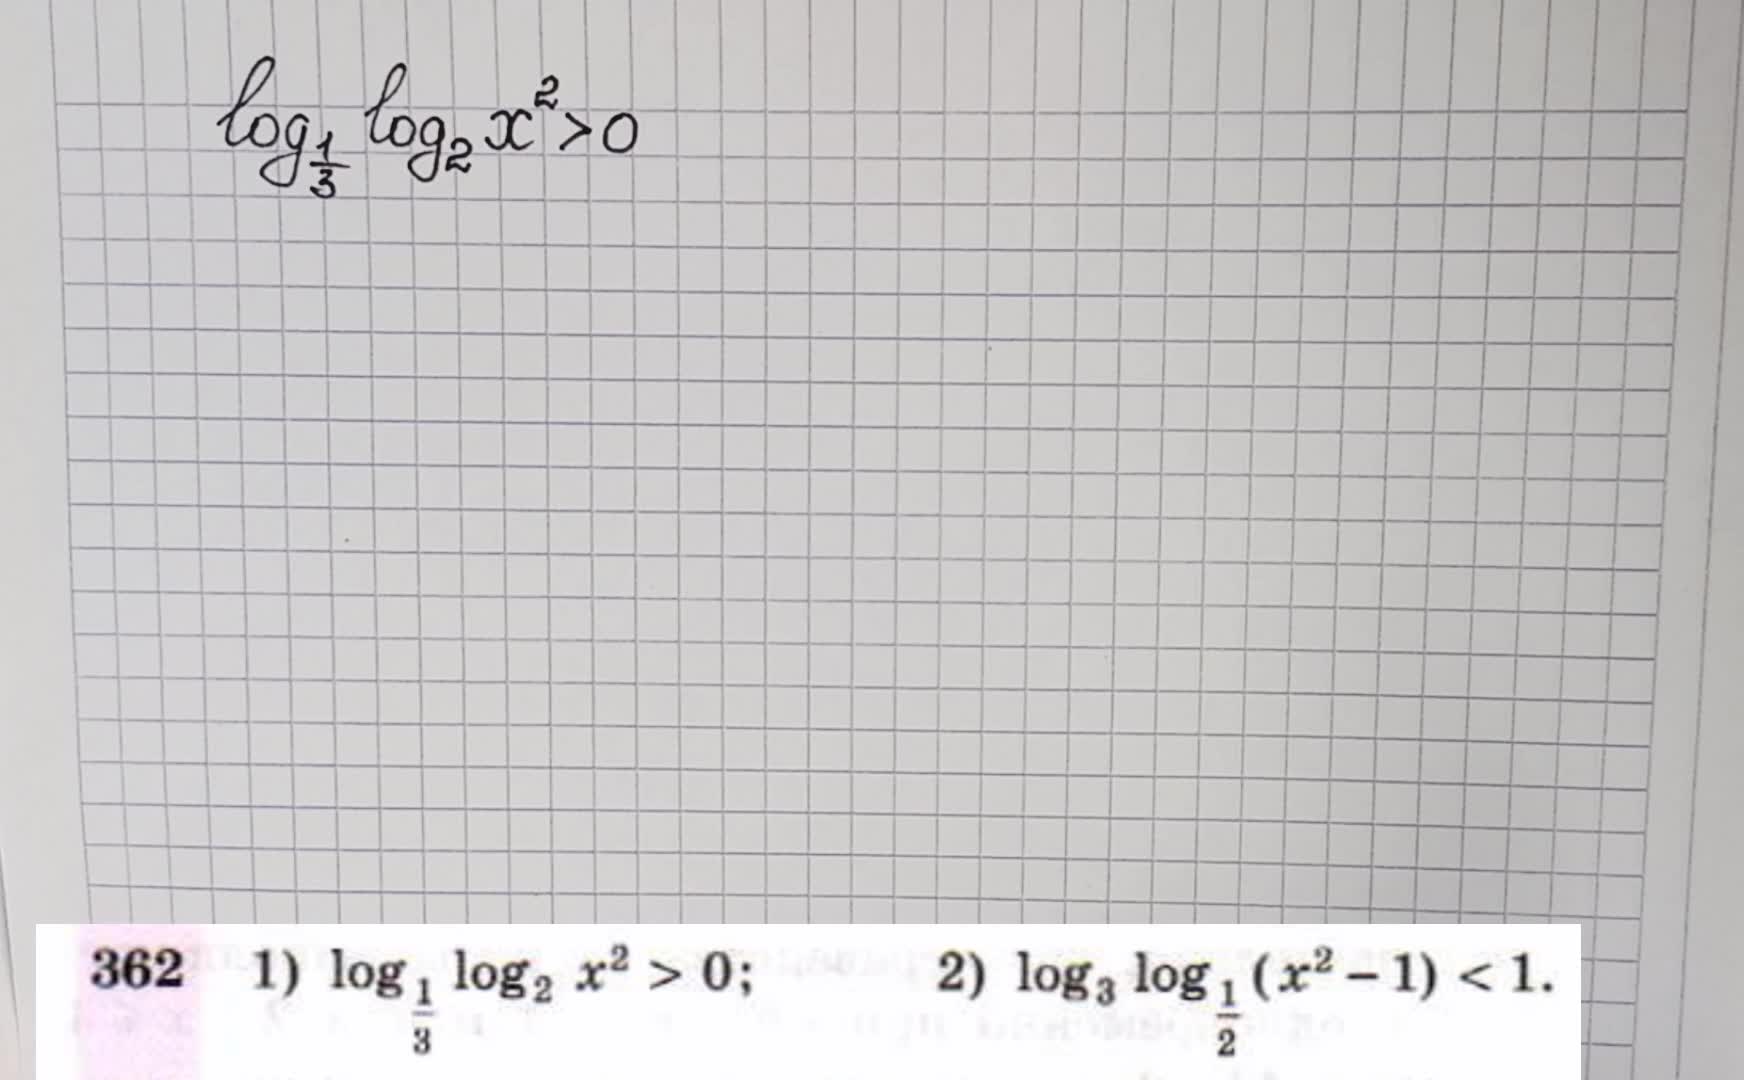 log_{\frac{1}{3}} log_2 x^2 > 0
362 1) log_{\frac{1}{3}} log_2 x^2 > 0; 2) log_3 log_{\frac{1}{2}} (x^2 – 1) < 1.